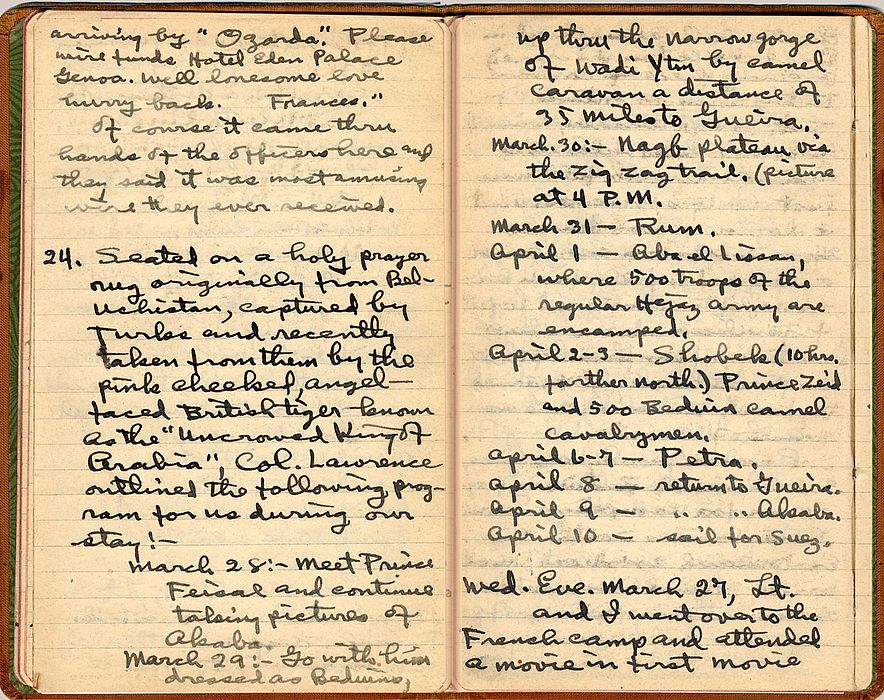 arriving by "Ozarda". Please
wire funds Hotel Eden Palace
Genoa. Well lonesome love
hurry back. Frances."
Of course it came thru
hands of the officers here and
they said it was most amusing
wire they ever received.
24. Seated on a holy prayer
rug originally from Bel-
uchistan, captured by
Turks and recently
taken from them by the
pink cheeked, angel-
faced British tiger known
as the "Uncrowed King of
Arabia", Col. Lawrence
outlined the following prog-
ram for us during our
stay:-
March 28:- Meet Prince
Feisal and continue
taking pictures of
Akaba.
March 29:- Go with him
dressed as Beduins,
up thru the narrow gorge
of Wadi Ytm by camel
caravan a distance of
35 miles to Gueira.
March. 30:- Nagb plateau via
the zig zag trail. (picture
at 4 P.M.
March 31 - Rum.
April 1 - Aba el Lissan,
where 500 troops of the
regular Hejaz army are
encamped.
April 2-3 - Shobek (10 hrs.
farther north.) Prince Zeid
and 500 Beduin camel
cavalrymen.
April 6-7 - Petra.
April 8 - return to Gueira.
April 9 - " " Akaba.
April 10 - sail for Suez.
Wed. Eve. March 27, Lt.
and I went over to the
French camp and attended
a movie in first movie